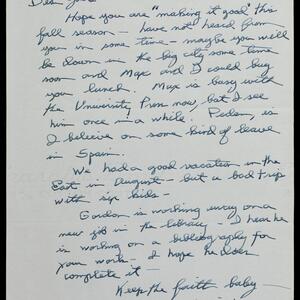 Dear
Hope you are "making it good" this
fall season — have not heard from
you in some time — maybe you will
be down in the big city some time
soon and Max and I could buy
you lunch. Max is busy with
the University Press now, but I see
him once in a while. Pedan, is
I believe on some kind of leave
in Spain.
We had a good vacation in the
East in August — but a bad trip
with six kids —
Gordon is working away on a
new job in the library — I hear he
is working on a bibliography for
your work — I hope he does
complete it —
Keep the faith baby —